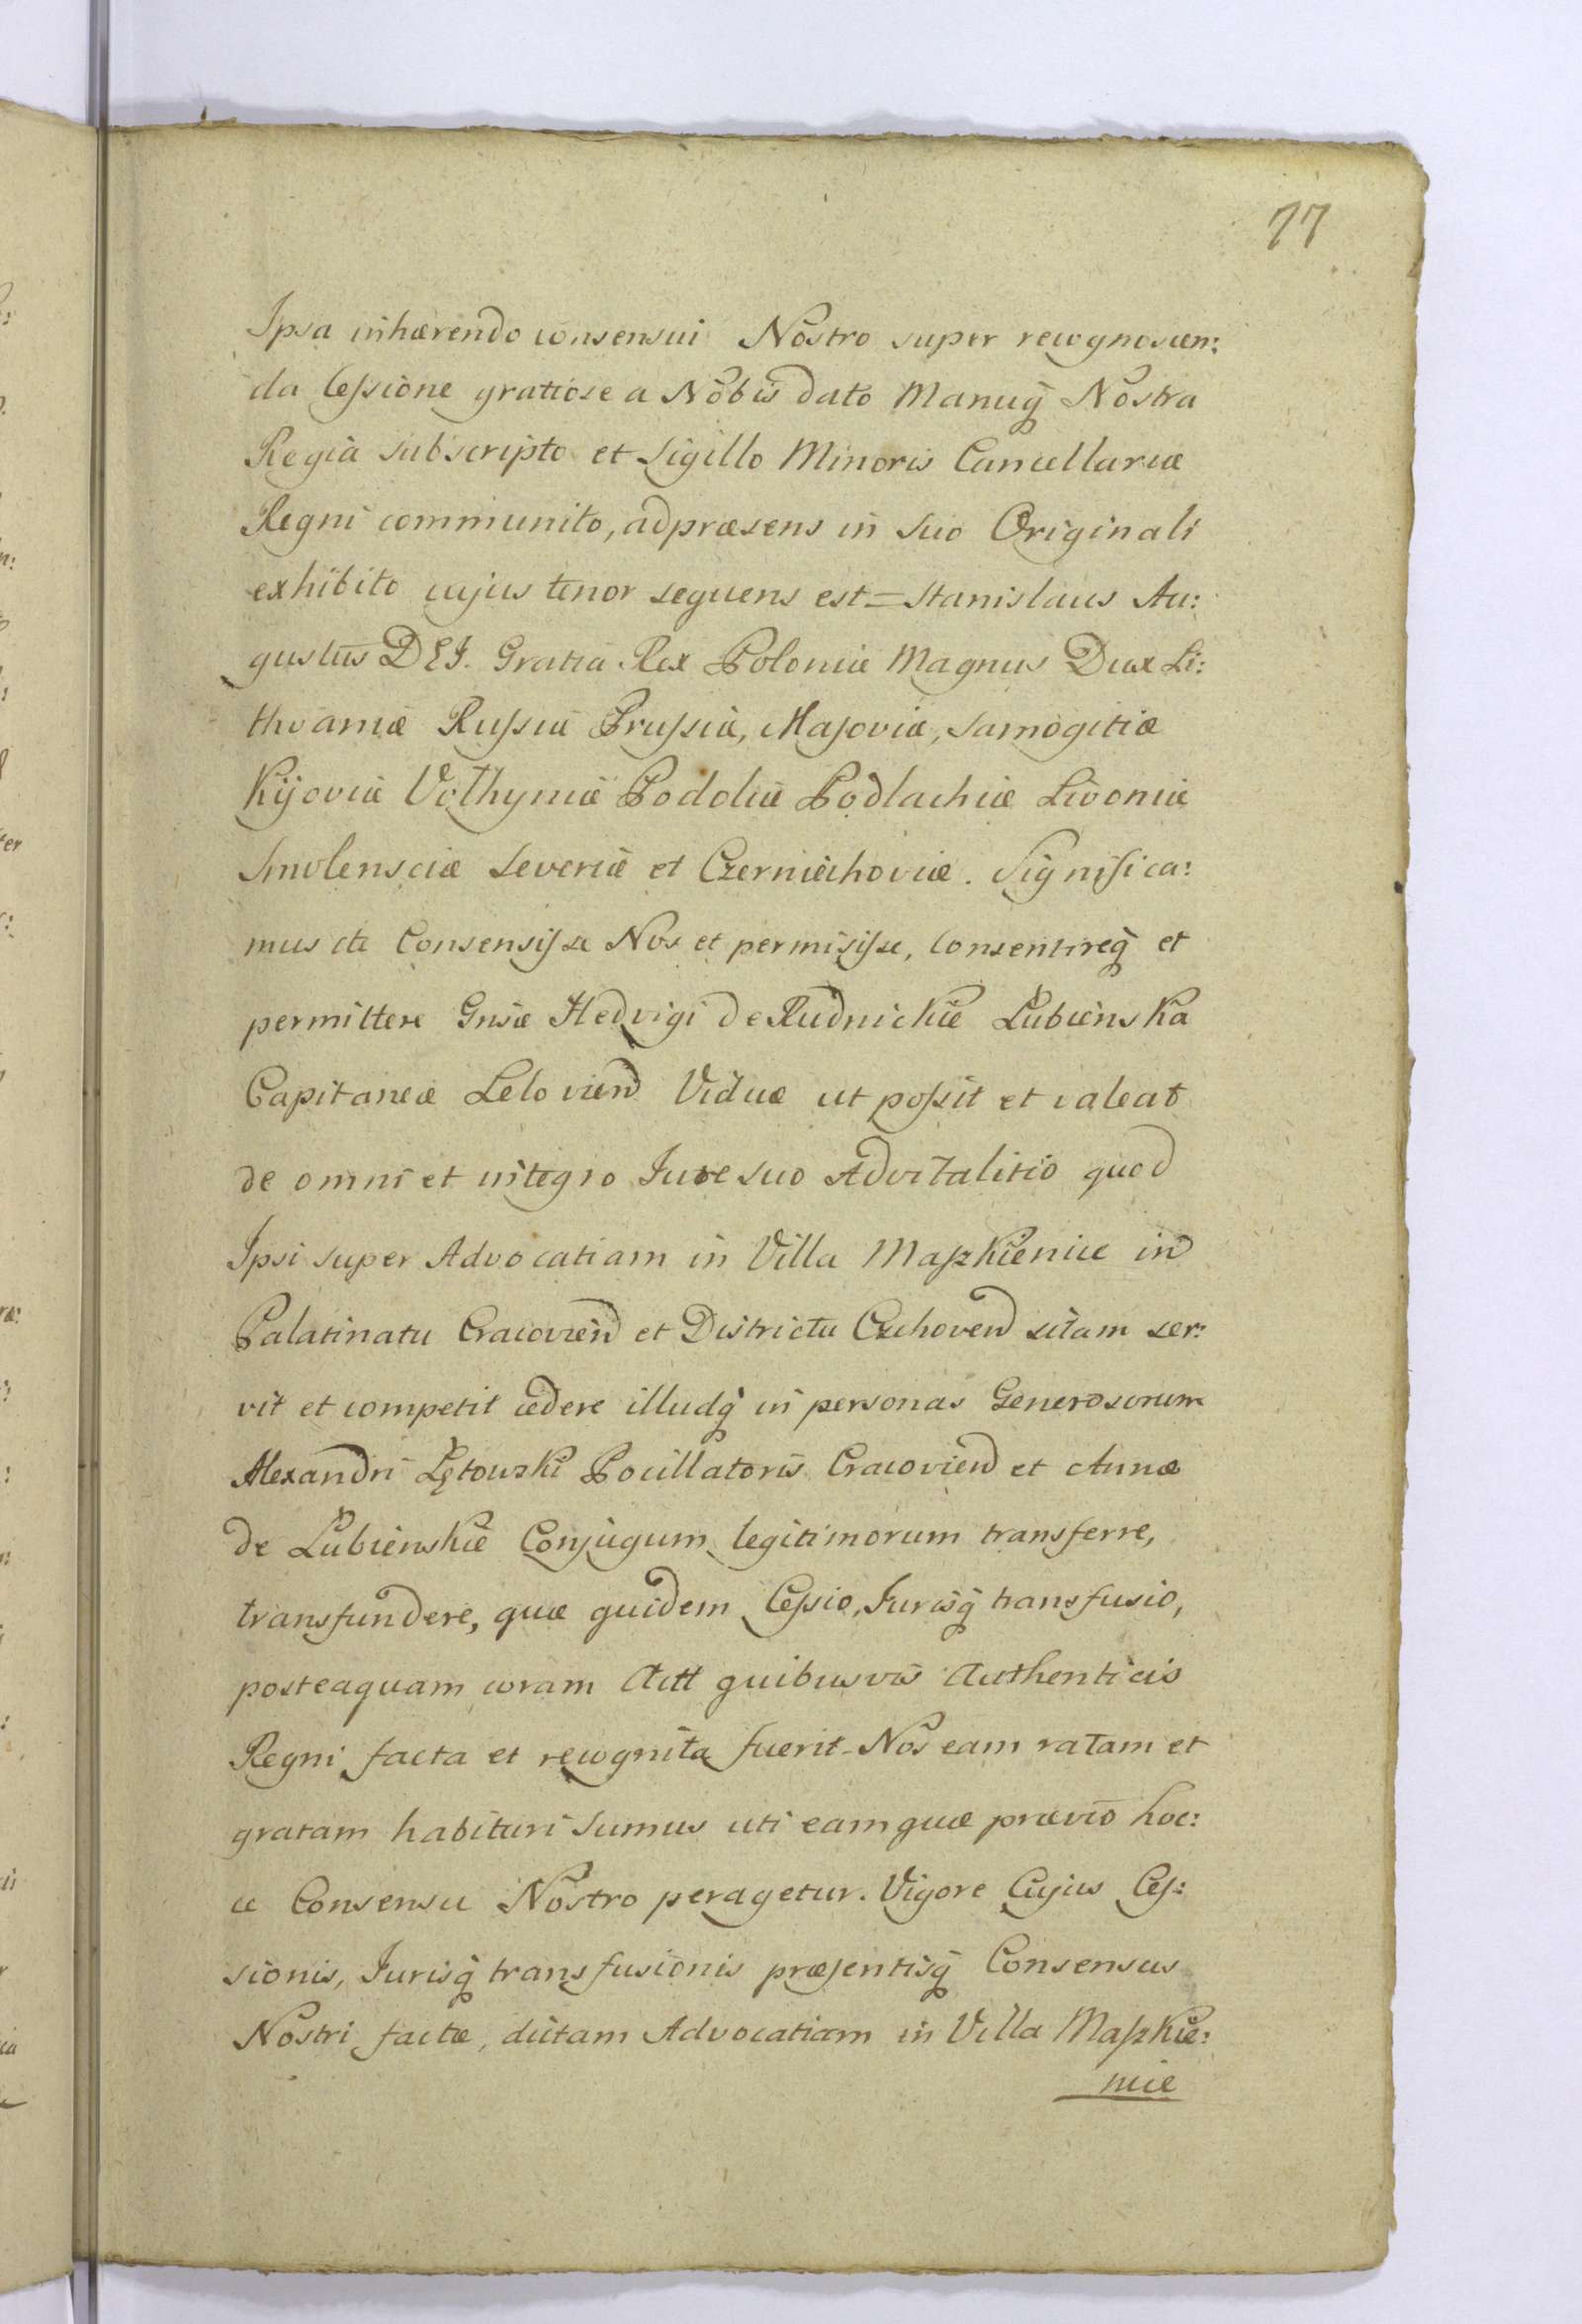 77
Ipsa inhærendo consensui Nostro super recognoscen:
da Cessione gratiose a Nobis dato Manuq̃ Nostra
Regia subscripto et Sigillo Minoris Cancellariæ
Regni communito, ad præsens in suo Originali
exhibito cujus tenor sequens est = Stanislaus Au:
gustus DEI. Gratia Rex Poloniæ Magnus Dux Li:
thvaniæ Russiæ Prussiæ, Masoviæ, Samogitiæ
Kijoviæ Volhyniæ Podoliæ Podlachiæ Livoniæ
Smolensciæ Severiæ et Czerniechoviæ. Significa:
mus etc Consensisse Nos et permisisse, Consentireq̃ et
permittere Gnsæ Hedvigi de Rudnickie Łubienska
Capitaneæ Lelovien Viduæ ut possit et valeat
de omni et integro Iure suo Advitalitio quod
Ipsi super Advocatiam in Villa Maszkienice in
Palatinatu Cracovien et Districtu Czchoven sitam ser:
vit et competit cedere illudq̃ in personas Generosorum
Alexandri Łętowski Pocillatoris Cracovien et Annæ
de Łubienskie Conjugum legitimorum transferre,
transfundere, quæ quidem Cessio, Jurisq̃ transfusio,
posteaquam coram Actt quibusvis Authenticis
Regni facta et recognita fuerit - Nos eam ratam et
gratam habituri sumus uti eam quæ prævio hoc:
ce Consensu Nostro peragetur. Vigore Cujus Ces:
sionis, Jurisq̃ transfusionis præsentisq̃ Consensus
Nostri factæ, dictam Advocatiam in Villa Maszkie:
nice